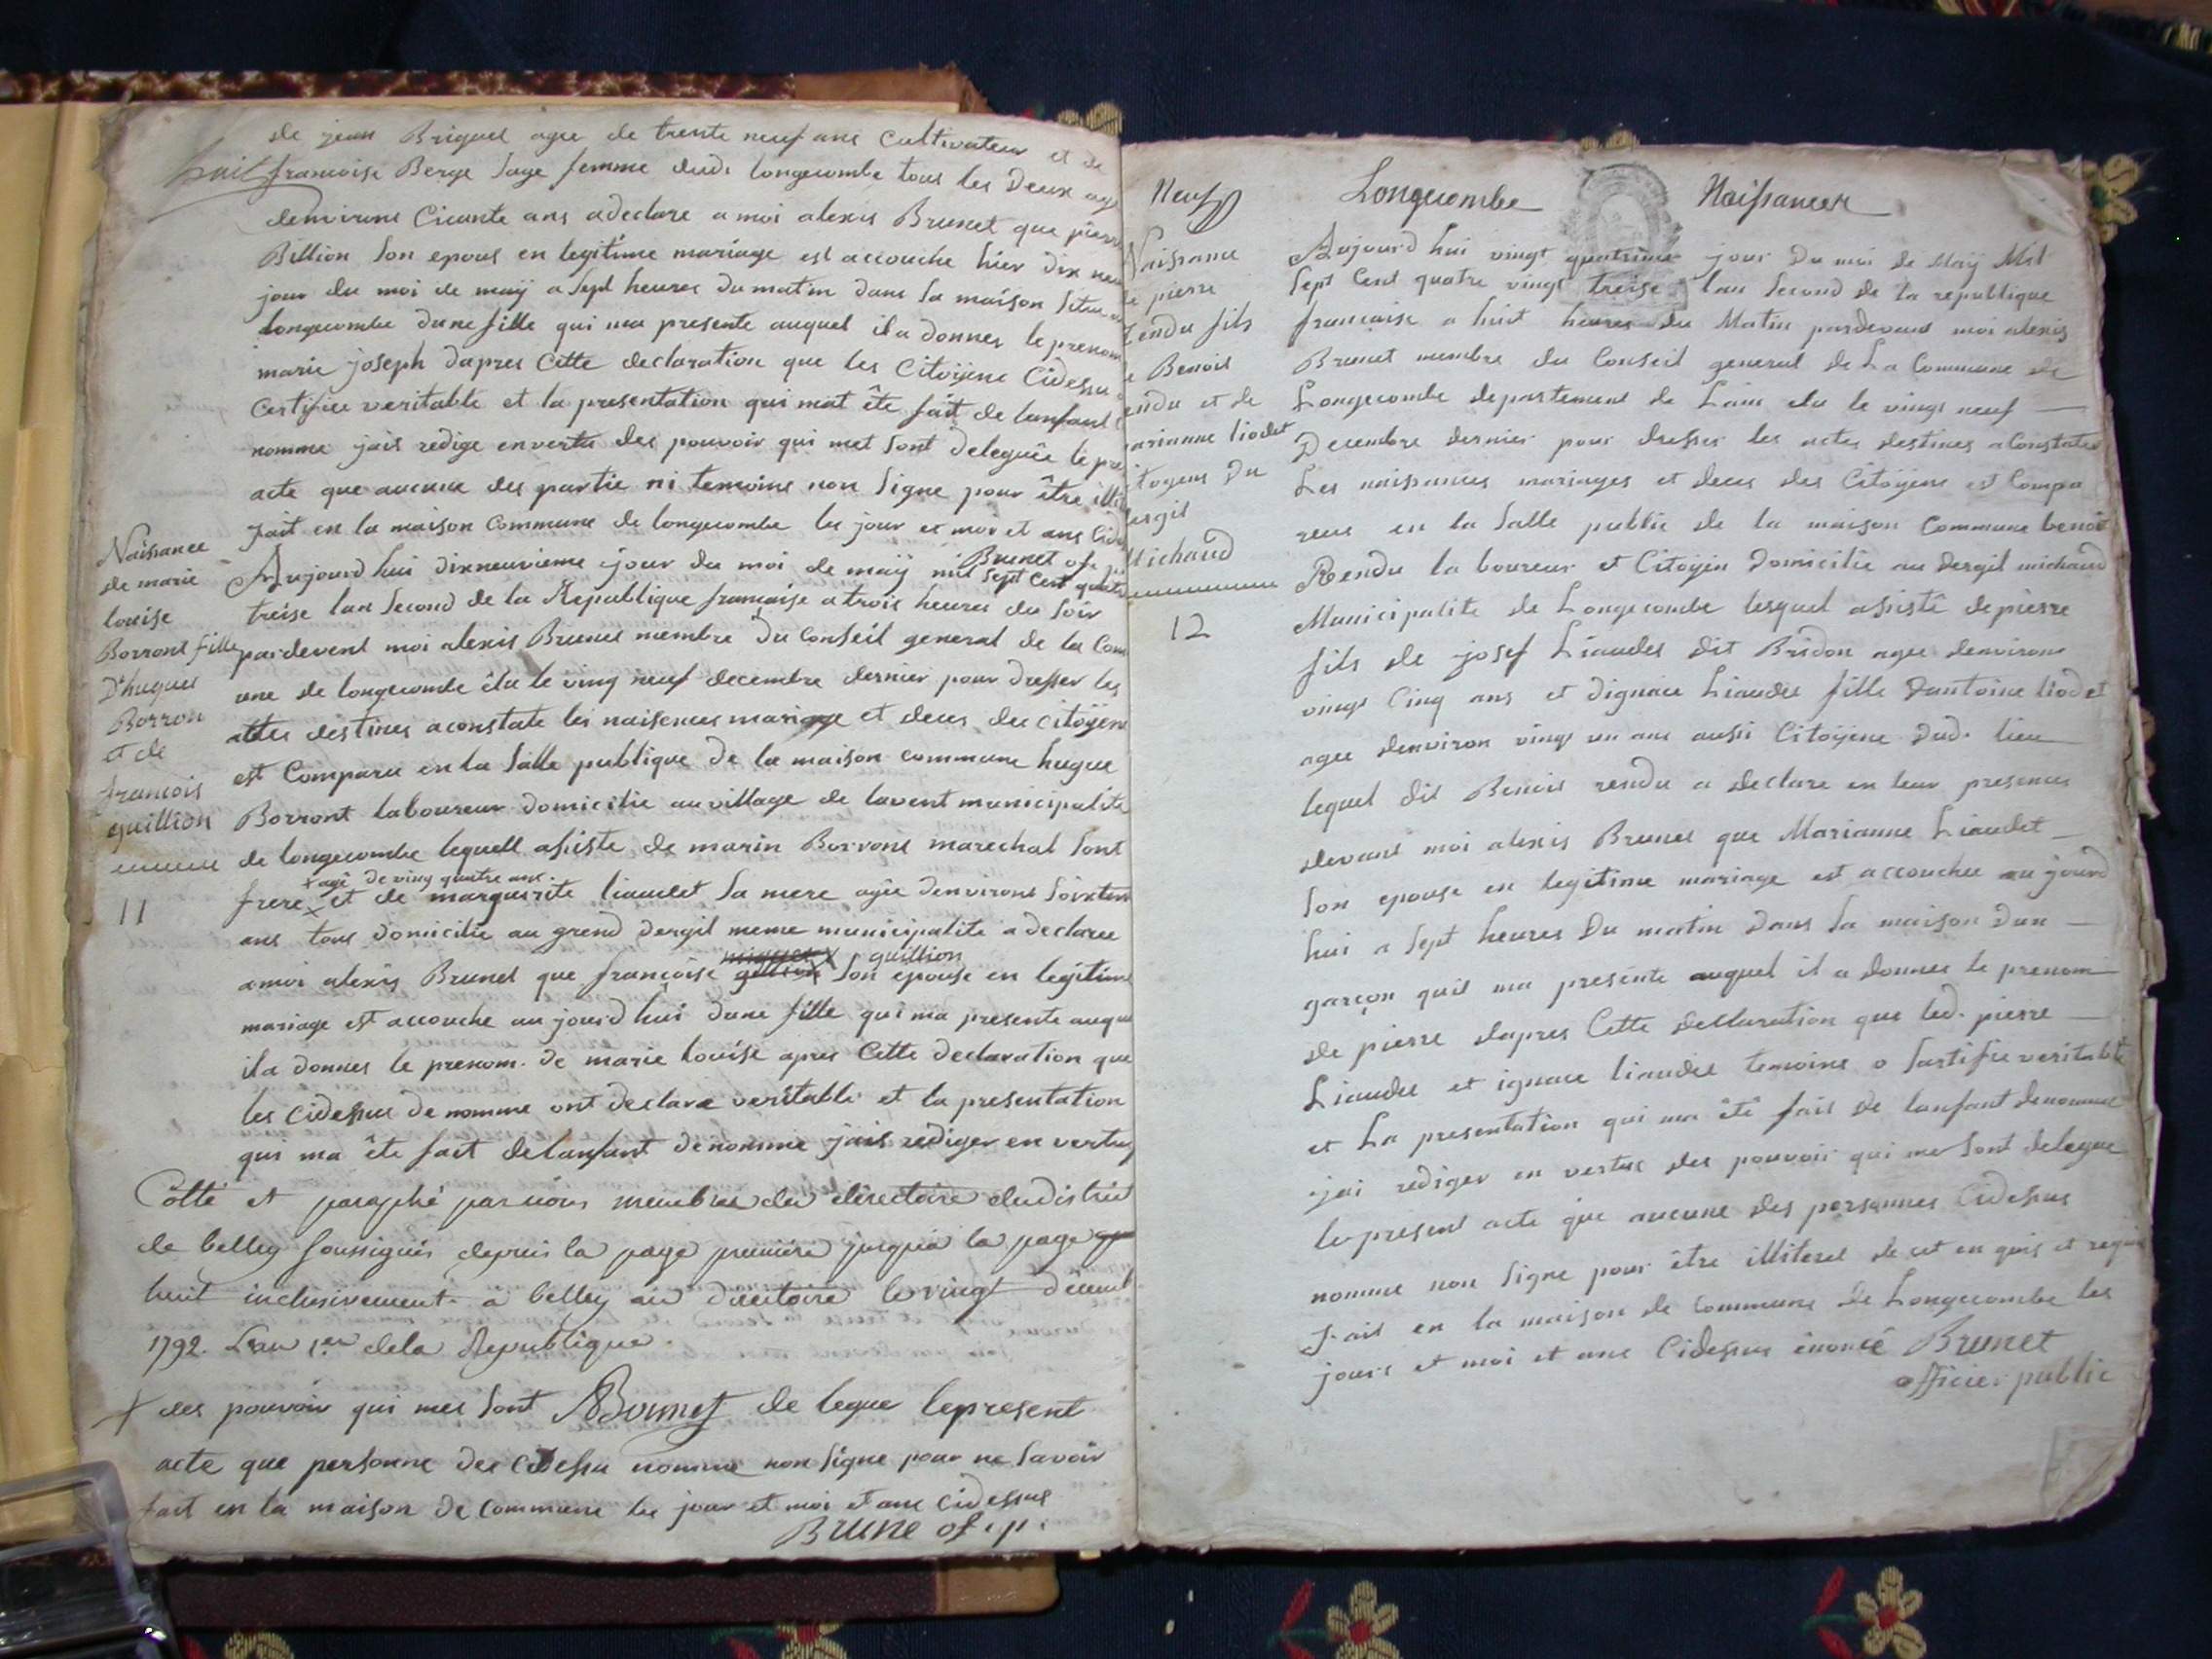 huit
de jean Briquel agee de trente neuf ans Cultivateur et de
francoise Berge sage femme dud. longecombe tous les Deux age
denvirons Cicante ans adeclare a moi alexis Brunet que pierr
Billion son epous en legitime mariage est accouche hier dix neu
jour du moi de maÿ a sept heures du matin dans sa maison situe
longecombe dune fille qui ma presente auquel il a donner le prenom
marie joseph dapres Cette declaration que les Citoÿens Cidessu
Certifiee veritable et la presentation qui mat ête fait de lanfant
nomme jais redige envertu des pouvoir qui met sont deleguée le pre
acte que aucune des partie ni temoins non signe pour être illi
fait en la maison commune de longecombe les jour et moi et ans Cide
Brunet of. p
Naissance
de marie
louise
Borront fille
D'hugues
Borron
et de
francois
guillion
11
Aujourd hui dixneuvieme jour du moi de maÿ mil sept Cent quatr
treise lan second de la Republique francaise a trois heures du soir
pardevent moi alexis Brunet membre du Conseil general de la Com
une de longecombe élu le ving neuf decembre dernier pour dresser les
attes destines aconstate les naisences mariage et deces des citoÿens
est Comparu en la salle publique de la maison commune hugue
Borront laboureur domicilie au village de lavent municipalite
de longecombe lequell assiste de marin Borront marechal sont
x agé de ving quatre ans.
frere x et de marguerite liaudet sa mere agée denvirons soixten
ans tous domicilie au grend dergil meme municipalite a declaree
guillion
amoi alexis Brunet que françoise son epouse en legitime
mariage est accouche au jourd hui dune fille qui ma presente auque
il a donner le prenom. de marie louise apres Cette declaration que
les cidessus de nomme ont declare veritable et la presentation
qui ma ête fait delanfant denomme jais rediger en vertu
Cotté et paraphé par nous membres du directoire du district
de belley soussignés depuis la page première jusqua la page
huit inclusivement a belley au directoire le vingt décemb
1792. L'an 1er de la Republique.
+ des pouvoir qui mes sont Brunet de legue lepresent
acte que personne des cidessu nomme non signe pour ne savoir
fait en la maison de commune les jour et moi et ans cidessus
Brune of. p.
Neuf
Longecombe Naissances
Naissance
de pierre
Rendu fils
de Benoit
Rendu et de
marianne liodet
Citoyens du
dergil
Michaud
12
Aujourd hui vingt quatrime jour Du moi de Maÿ Mil
sept Cent quatre vingt treise lan second de la republique
francaise a huit heures du Matin pardevant moi alexis
Brunet membre du Conseil general de La Commune de
Longecombe departement de Lain elu le vingt neuf
Decembre dernier pour dresser les actes destines aConstater
Les naissances mariages et deces des Citoÿens est Compa
reus en la salle public de la maison Commune benoit
Rendu la boureur et Citoÿen Domicilie au Dergil michaud
Municipalite de Longecombe lesquel assistê de pierre
fils de josef Liaudet dit Bridon agee denvirons
vingt Cinq ans et dignace Liaudet fille dantoine liodet
agee denviron vingt un ans aussi Citoÿene dud. lieu
lequel dit Benoit rendu a declare en leur presences
devant moi alexis Brunet que Marianne Liaudet
son epouse en legitime mariage est accouchee au jourd
hui a sept heures Du matin Dans sa maison dun
garçon quil ma presente auquel il a donner le prenom
de pierre dapres Cette declaration que led. pierre
Liaudet et ignace liaudet temoins o sartifie veritable
et La presentation qui ma été fait de lanfant denomme
jai rediger en vertue des pouvoir qui me sont delegue
le present acte que aucune des personnes Cidessus
nomme non signe pour être illiteret de cet en quis et requis
Fait en la maison de Commune de Longecombe les
jours et moi et ans Cidessus énoncé Brunet
officier public